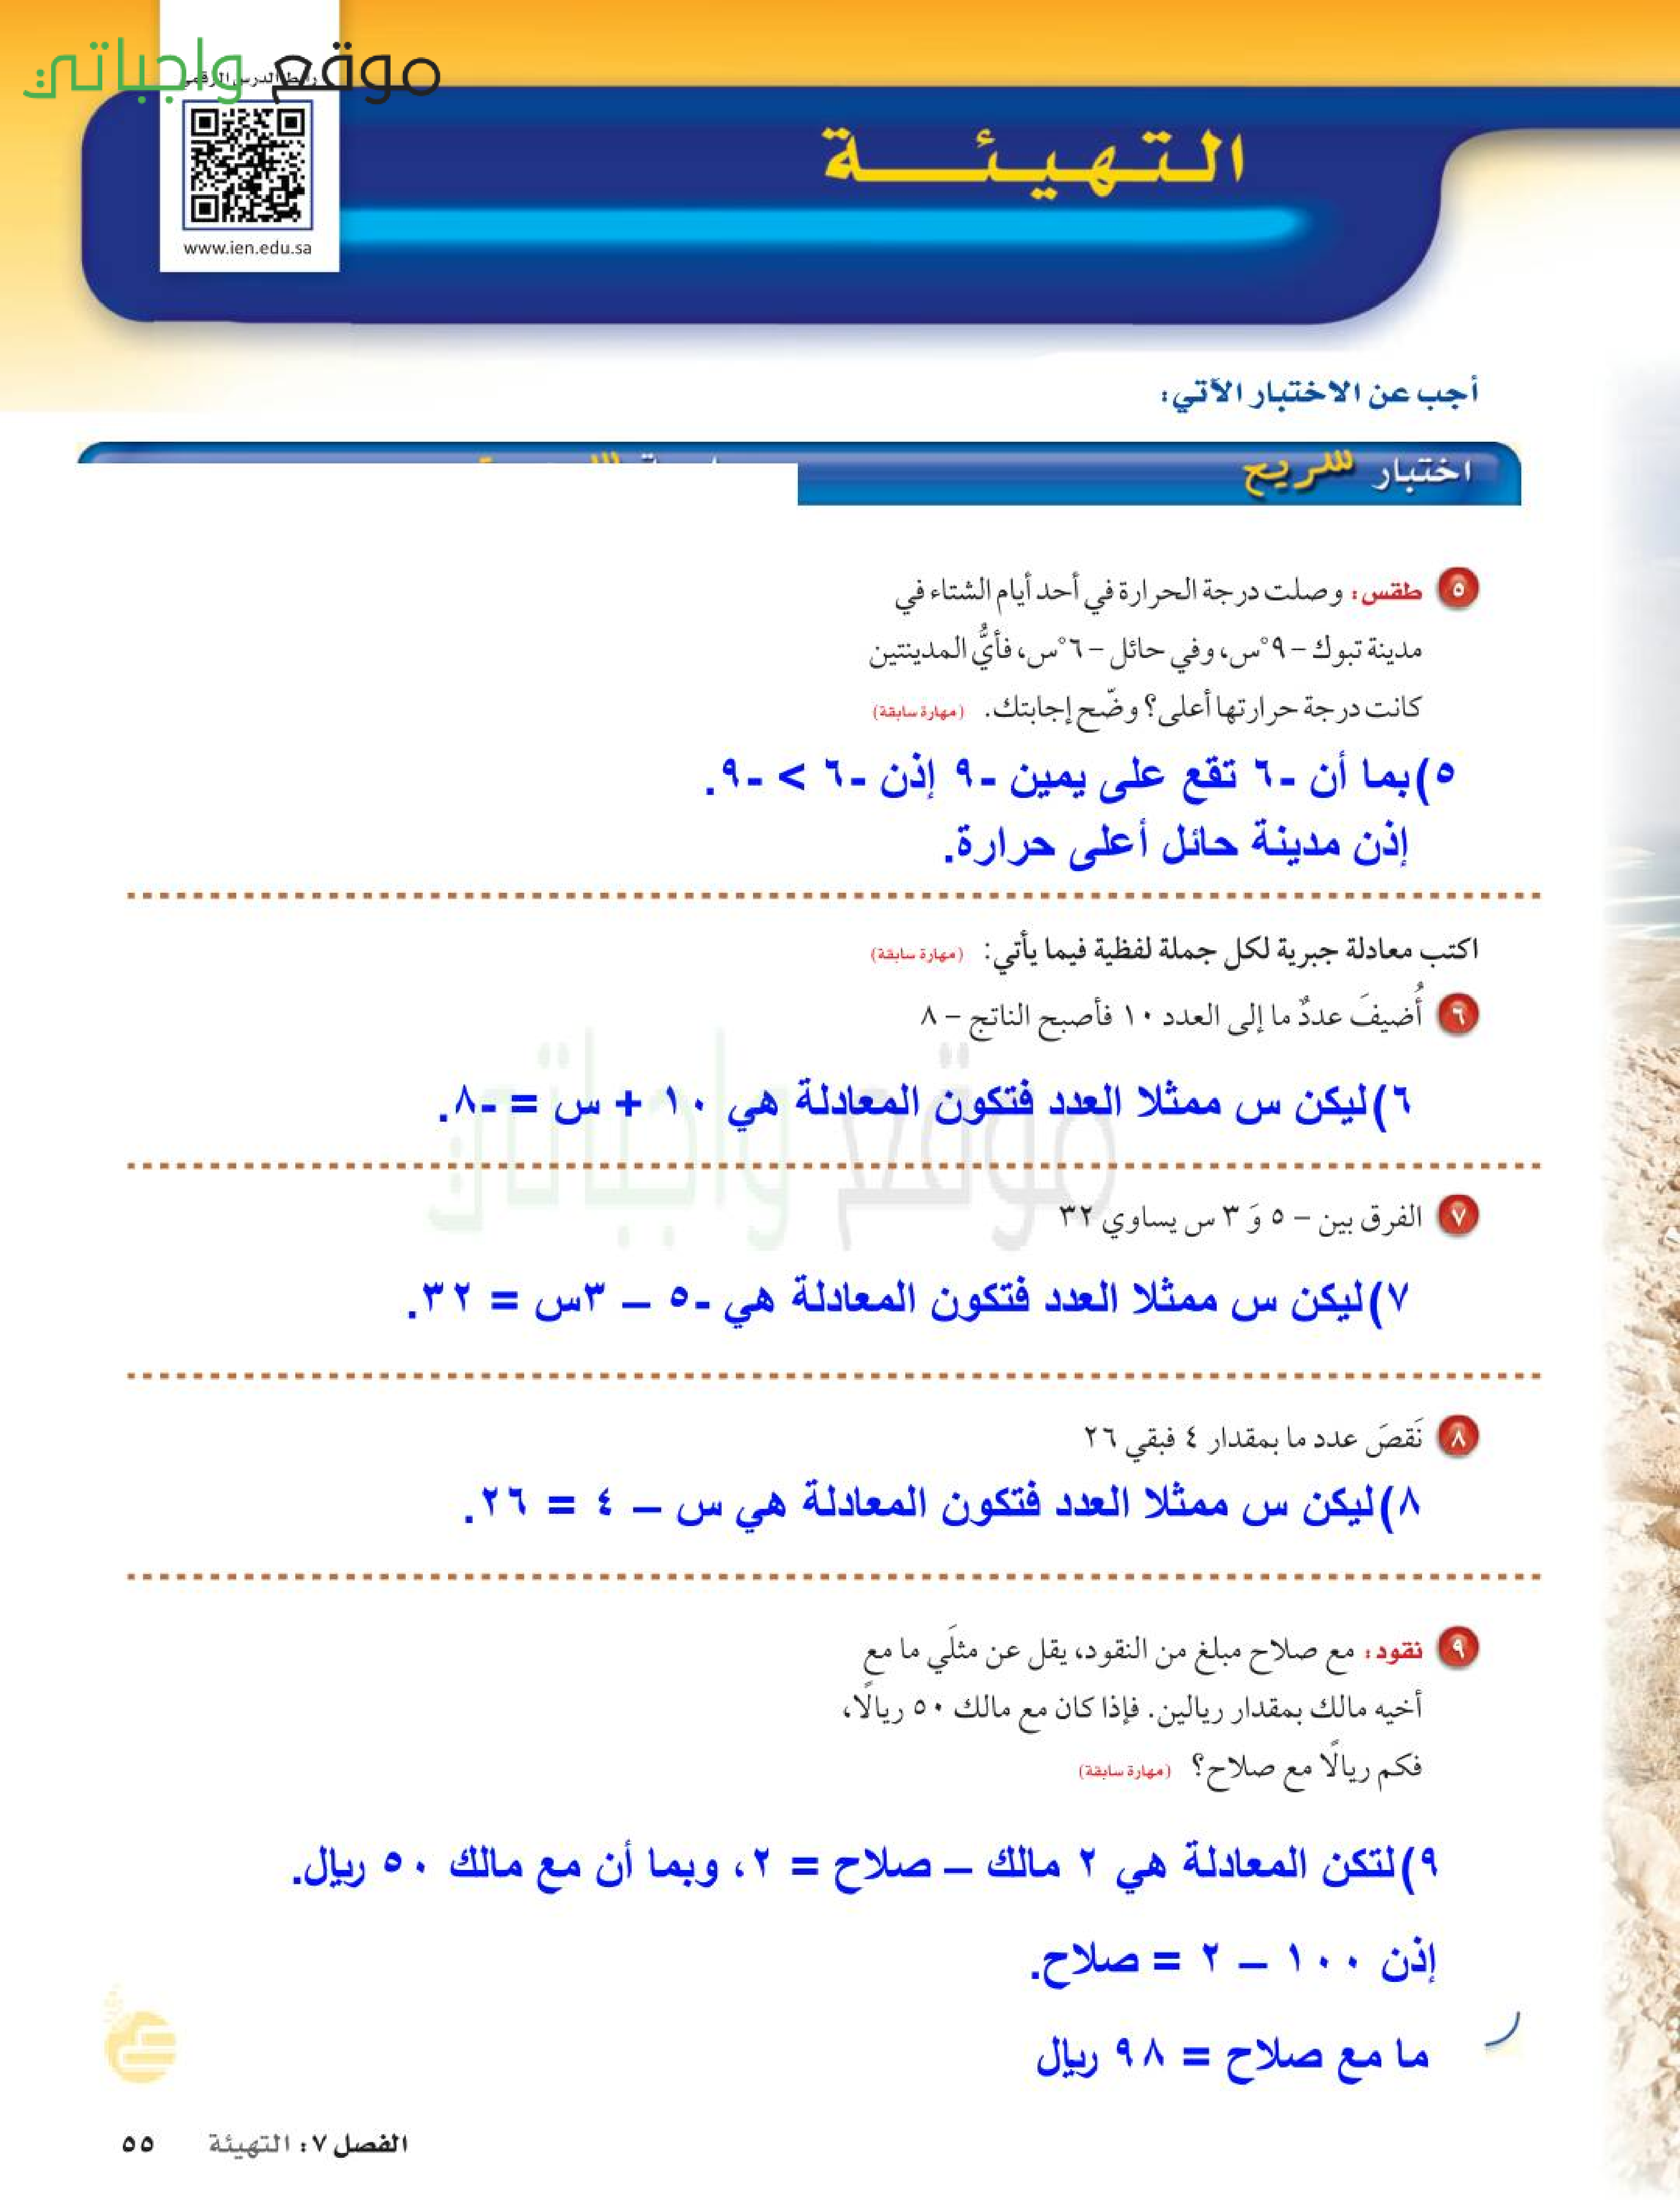 موقع واجباتي
رابط الدرس الرقمي
www.ien.edu.sa
التهيئة
أجب عن الاختبار الآتي:
اختبار سريع
٥ طقس: وصلت درجة الحرارة في أحد أيام الشتاء في
مدينة تبوك – ٩°س، وفي حائل – ٦°س، فأيُّ المدينتين
كانت درجة حرارتها أعلى؟ وضّح إجابتك. (مهارة سابقة)
٥) بما أن -٦ تقع على يمين -٩ إذن -٦ > -٩.
إذن مدينة حائل أعلى حرارة.
اكتب معادلة جبرية لكل جملة لفظية فيما يأتي: (مهارة سابقة)
٦ أُضيفَ عددٌ ما إلى العدد ١٠ فأصبح الناتج – ٨
٦) ليكن س ممثلا العدد فتكون المعادلة هي ١٠ + س = -٨.
٧ الفرق بين – ٥ وَ ٣ س يساوي ٣٢
٧) ليكن س ممثلا العدد فتكون المعادلة هي -٥ – ٣س = ٣٢.
٨ نَقصَ عدد ما بمقدار ٤ فبقي ٢٦
٨) ليكن س ممثلا العدد فتكون المعادلة هي س – ٤ = ٢٦.
٩ نقود: مع صلاح مبلغ من النقود، يقل عن مثلَي ما مع
أخيه مالك بمقدار ريالين. فإذا كان مع مالك ٥٠ ريالًا،
فكم ريالًا مع صلاح؟ (مهارة سابقة)
٩) لتكن المعادلة هي ٢ مالك – صلاح = ٢، وبما أن مع مالك ٥٠ ريال.
إذن ١٠٠ – ٢ = صلاح.
ما مع صلاح = ٩٨ ريال
الفصل ٧: التهيئة ٥٥